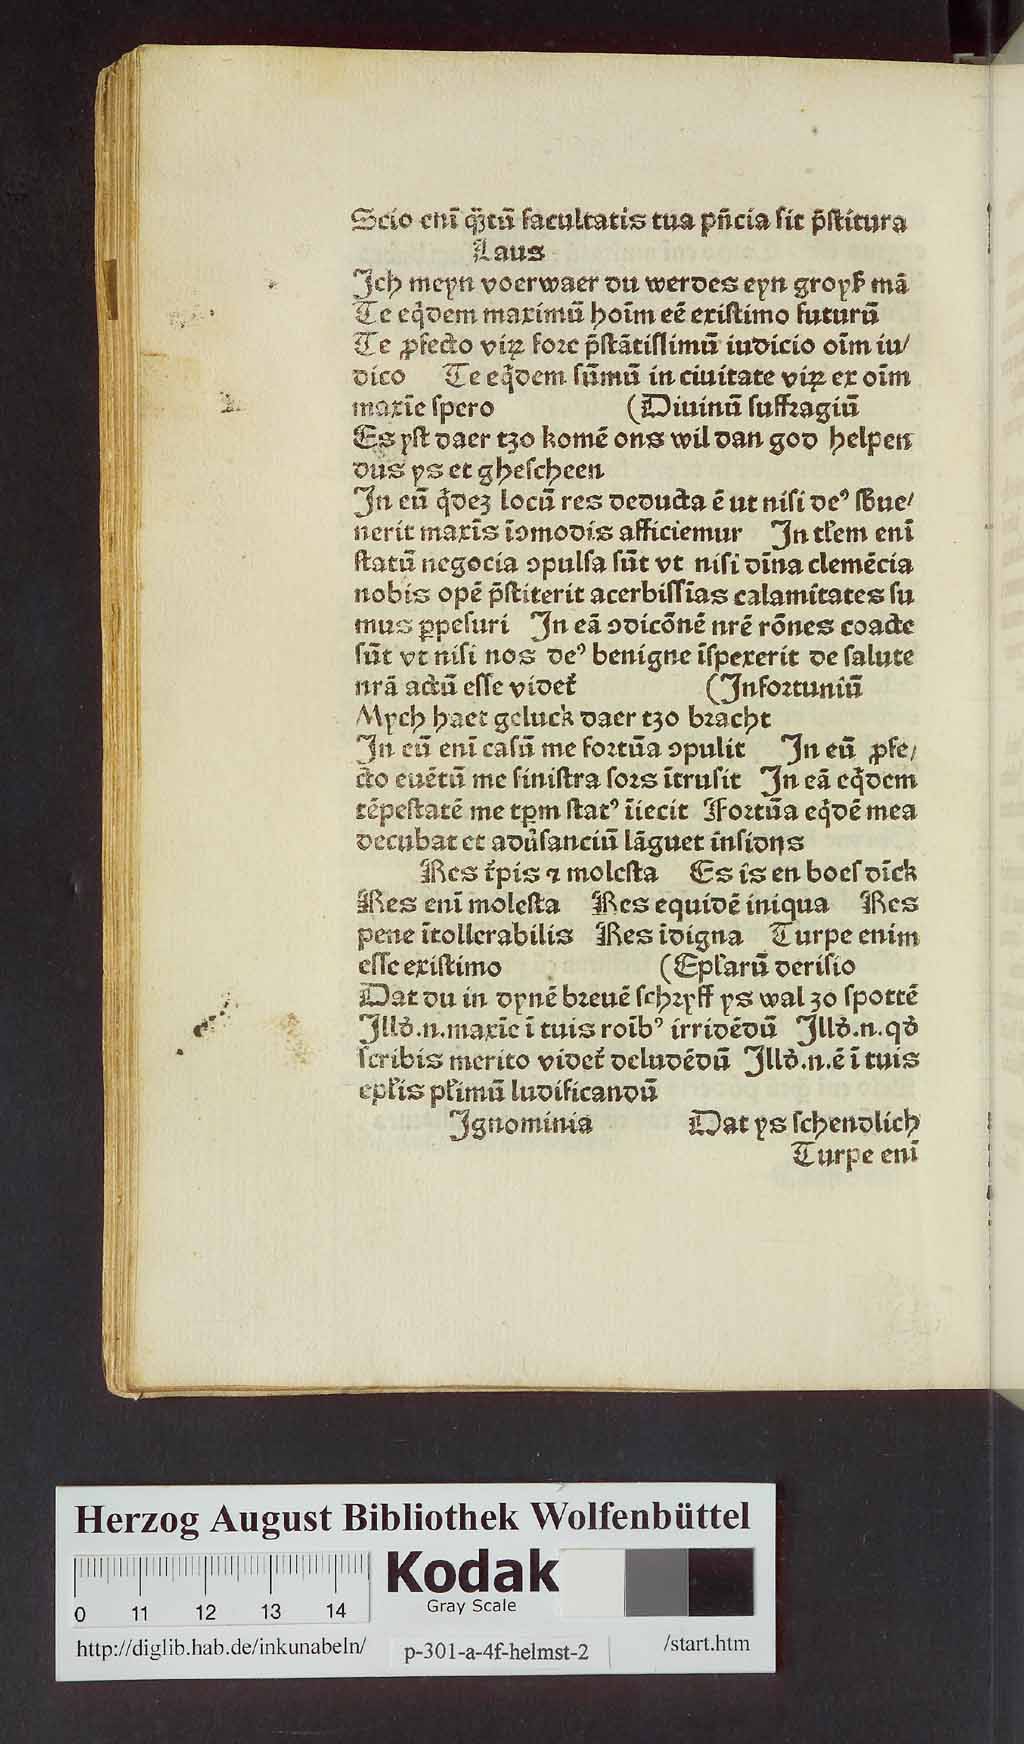 Scio enī q̄tū facultatis tua pn̄cia sit p̄stitura
Laus
Ich meyn voerwaer du werdes eyn groyß mā
Te eqͥdem maximū hoīm eē existimo futurū
Te ꝓfecto viꝝ fore p̄stātissimū iudicio oīm iu/
dico Te eqͥdem sūmū in ciuitate viꝝ ex oīm
maxīe spero (Diuinū suffragiū
Es yst daer tzo komē ons wil dan god helpen
dus ys et ghescheen
In eū qͥdez locū res deducta ē ut nisi deꝰ sbue/
nerit maxīs īↄmodis afficiemur In tlem enī
statū negocia ↄpulsa sūt vt nisi dīna clemēcia
nobis opē p̄stiterit acerbissīas calamitates su
mus ꝑpesuri In eā ↄdicōnē nrē rōnes coacte
sūt vt nisi nos deꝰ benigne īspexerit de salute
nrā actū esse videt᷑ (Infortuniū
Mych haet geluck daer tzo bracht
In eū enī casū me fortūa ↄpulit In eū ꝓfe/
cto euētū me sinistra sors ītrusit In eā eqͥdem
tēpestatē me tꝑm statꝰ īiecit Fortūa eqͥdē mea
decubat et adu᷑sanciū lāguet īnsidijs
Res t᷑pis ⁊ molesta Es is en boes dīck
Res enī molesta Res equidē iniqua Res
pene ītollerabilis Res īdigna Turpe enim
esse existimo (Eplarū derisio
Dat du in dynē breuē schryff ys wal zo spottē
Illd̓.n.maxīe ī tuis roībꝰ irridēdū Illd̓.n.qd̓
scribis merito videt᷑ deludēdū Illd̓.n.ē ī tuis
eplis plimū ludificandū
Ignominia Dat ys schendlich
Turpe enī
Herzog August Bibliothek Wolfenbüttel
Kodak
Gray Scale
0 11 12 13 14
http://diglib.hab.de/inkunabeln/ p-301-a-4f-helmst-2 /start.htm